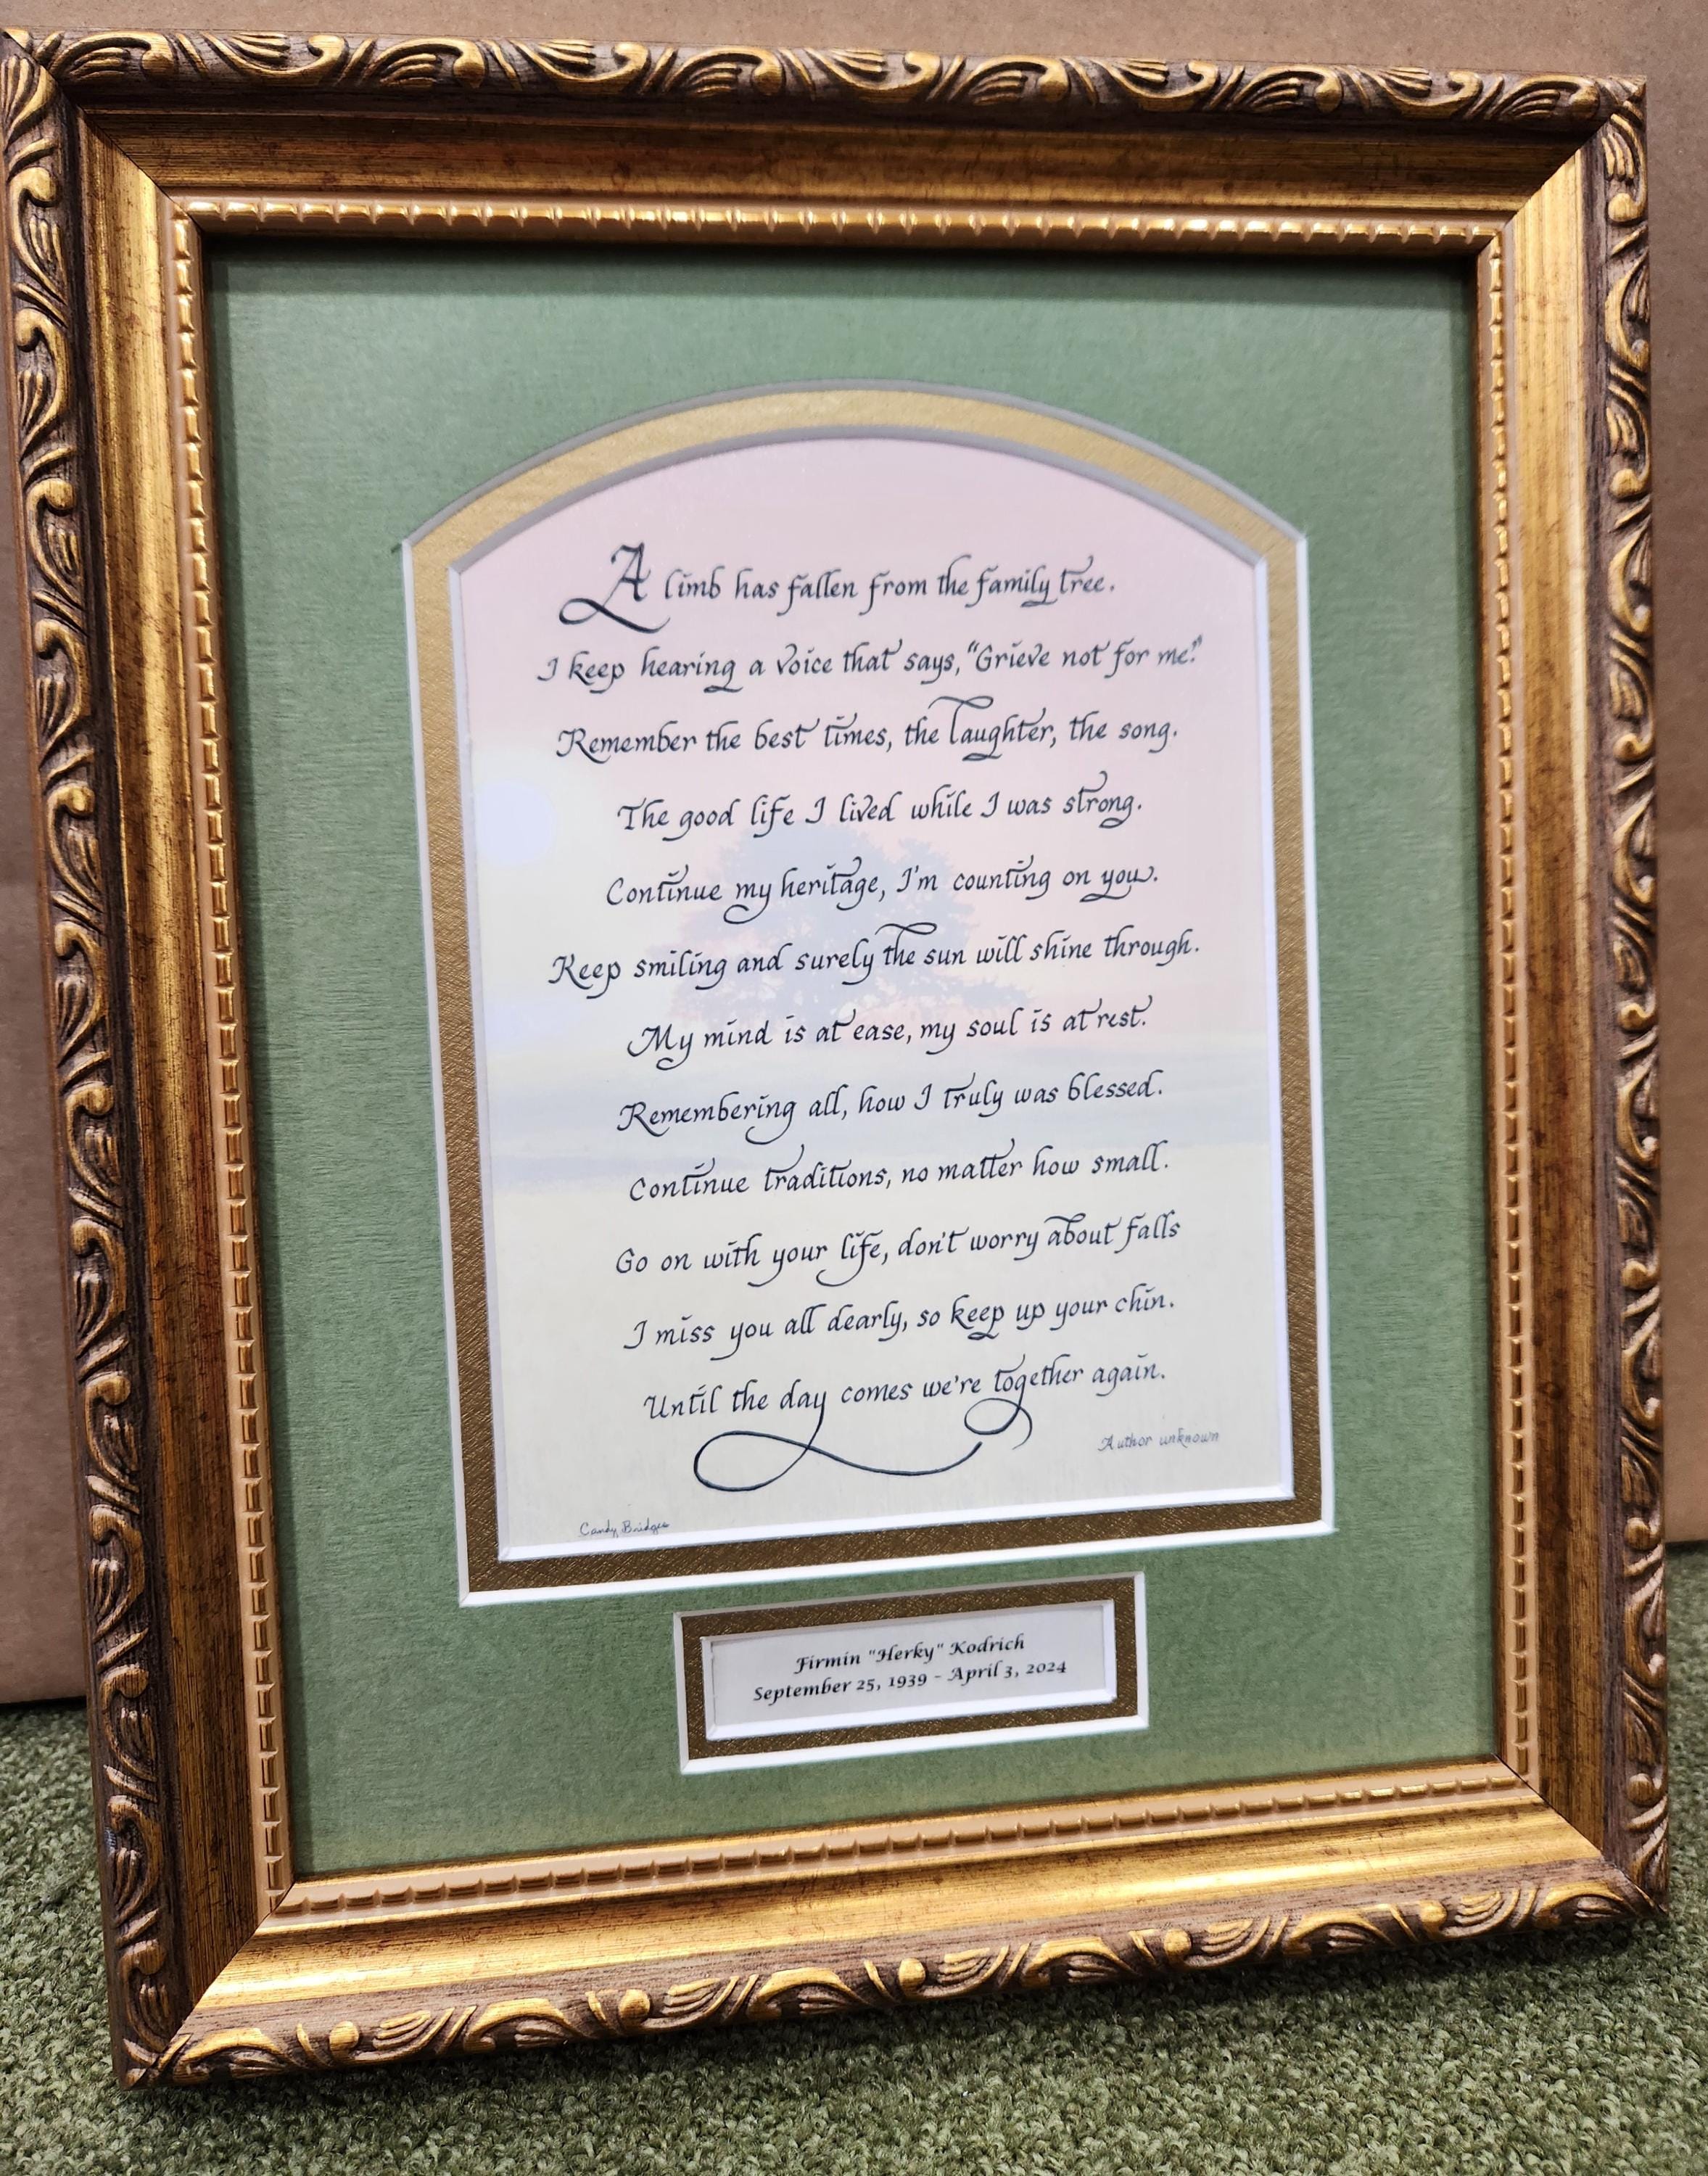 A limb has fallen from the family tree.
I keep hearing a voice that says, "Grieve not for me."
Remember the best times, the laughter, the song.
The good life I lived while I was strong.
Continue my heritage, I'm counting on you.
Keep smiling and surely the sun will shine through.
My mind is at ease, my soul is at rest.
Remembering all, how I truly was blessed.
Continue traditions, no matter how small.
Go on with your life, don't worry about falls
I miss you all dearly, so keep up your chin.
Until the day comes we're together again.
Author unknown
Candy Bridges
Firmin "Herky" Kodrich
September 25, 1939 - April 3, 2024